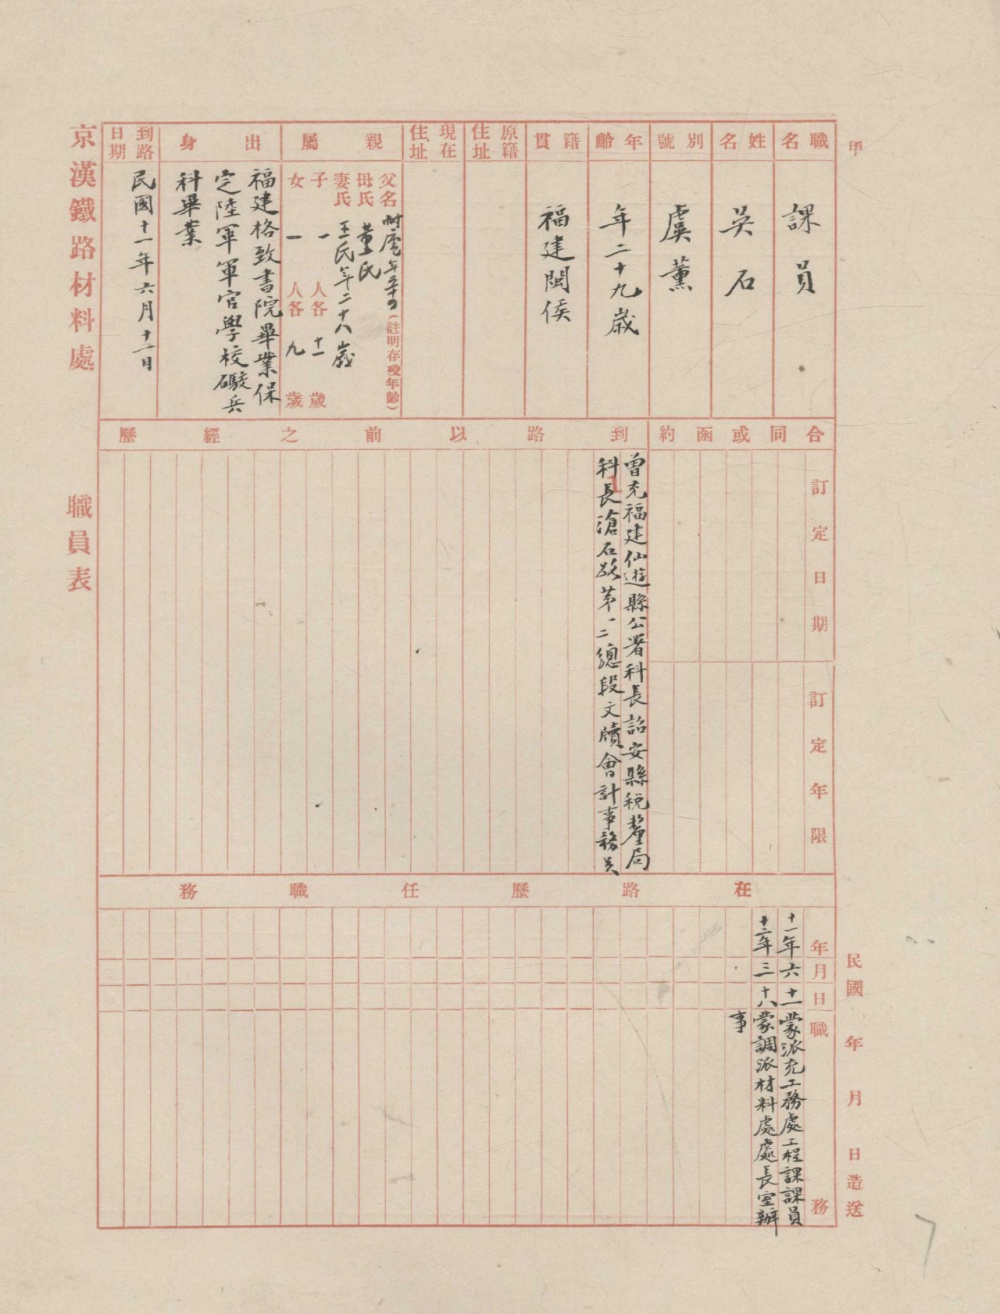 甲
職名
課員
姓名
吳石
別號
虞薰
年齡
年二十九歲
籍貫
福建閩侯
原籍住址
現在住址
親屬
父名 耐虞 (註明存歿年齡)
母氏 董氏
妻氏 王氏年二十八歲
子 一 人各 十一 歲
女 一 人各 九 歲
出身
福建格致書院畢業保
定陸軍軍官學校礮兵
科畢業
到路日期
民國十一年六月十一日
京漢鐵路材料處 職員表
合同或函約
訂定日期
訂定年限
到路以前之經歷
曾充福建仙遊縣公署科長詔安縣稅釐局
科長滄石路第一二總段文牘會計事務員
在路歷任職務
年月日 職務
十一年六十一蒙派充工務處工程課課員
十二年三十八蒙調派材料處處長室辦
事
民國 年 月 日造送
7